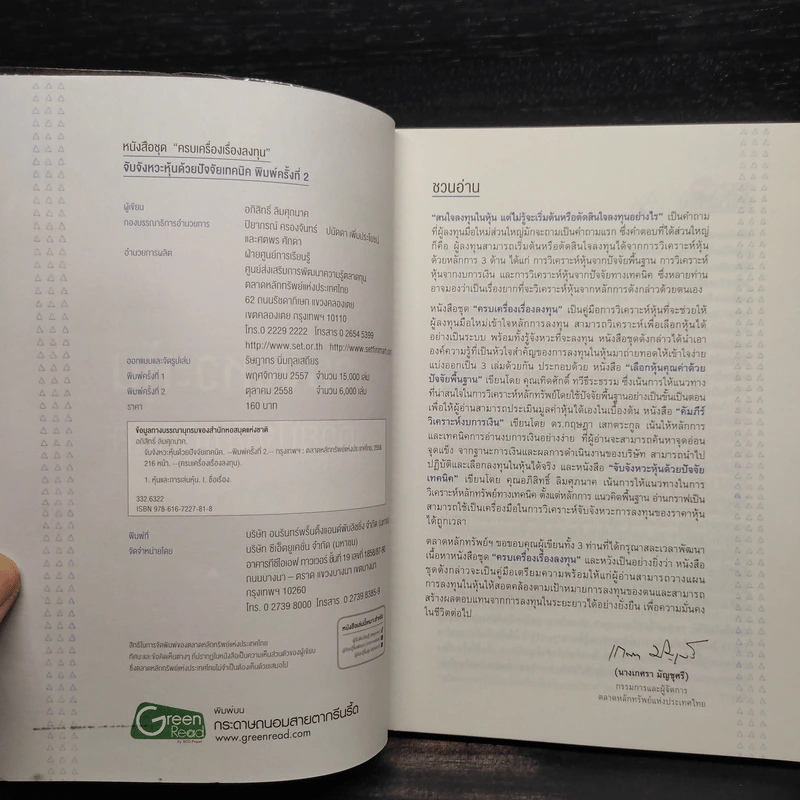 หนังสือชุด "ครบเครื่องเรื่องลงทุน"
จับจังหวะหุ้นด้วยปัจจัยเทคนิค พิมพ์ครั้งที่ 2
ผู้เขียน อภิสิทธิ์ ลิมศุภนาค
กองบรรณาธิการอำนวยการ ปิยาภรณ์ ครองจันทร์ ปนัดดา เพิ่มประโยชน์
และศตพร ศักดา
อำนวยการผลิต ฝ่ายศูนย์การเรียนรู้
ศูนย์ส่งเสริมการพัฒนาความรู้ตลาดทุน
ตลาดหลักทรัพย์แห่งประเทศไทย
62 ถนนรัชดาภิเษก แขวงคลองเตย
เขตคลองเตย กรุงเทพฯ 10110
โทร.0 2229 2222 โทรสาร 0 2654 5399
http://www.set.or.th http://www.settfinmart.com
ออกแบบและจัดรูปเล่ม รัษฎากร นิ่มกุลเสถียร
พิมพ์ครั้งที่ 1 พฤศจิกายน 2557 จำนวน 15,000 เล่ม
พิมพ์ครั้งที่ 2 ตุลาคม 2558 จำนวน 6,000 เล่ม
ราคา 160 บาท
ข้อมูลทางบรรณานุกรมของสำนักหอสมุดแห่งชาติ
อภิสิทธิ์ ลิมศุภนาค.
จับจังหวะหุ้นด้วยปัจจัยเทคนิค.--พิมพ์ครั้งที่ 2.-- กรุงเทพฯ : ตลาดหลักทรัพย์แห่งประเทศไทย, 2558
216 หน้า.--(ครบเครื่องเรื่องลงทุน).
1. หุ้นและการเล่นหุ้น. I. ชื่อเรื่อง.
332.6322
ISBN 978-616-7227-81-8
พิมพ์ที่ บริษัท อมรินทร์พริ้นติ้งแอนด์พับลิชชิ่ง จำกัด (มหาชน)
จัดจำหน่ายโดย บริษัท ซีเอ็ดยูเคชั่น จำกัด (มหาชน)
อาคารทีซีไอเอฟ ทาวเวอร์ ชั้นที่ 19 เลขที่ 1858/87-90
ถนนบางนา – ตราด แขวงบางนา เขตบางนา
กรุงเทพฯ 10260
โทร. 0 2739 8000 โทรสาร 0 2739 8385-9
หนังสือเล่มนี้เหมาะสำหรับ
สิทธิในการจัดพิมพ์ของตลาดหลักทรัพย์แห่งประเทศไทย
ทัศนะและข้อคิดเห็นต่างๆ ที่ปรากฏในหนังสือเป็นความเห็นส่วนตัวของผู้เขียน
ซึ่งตลาดหลักทรัพย์แห่งประเทศไทยไม่จำเป็นต้องเห็นด้วยเสมอไป
Green Read
by SCG Paper
พิมพ์บน
กระดาษถนอมสายตากรีนรี้ด
www.greenread.com
ชวนอ่าน
"สนใจลงทุนในหุ้น แต่ไม่รู้จะเริ่มต้นหรือตัดสินใจลงทุนอย่างไร" เป็นคำถาม
ที่ผู้ลงทุนมือใหม่ส่วนใหญ่มักจะถามเป็นคำถามแรก ซึ่งคำตอบที่ได้ส่วนใหญ่
ก็คือ ผู้ลงทุนสามารถเริ่มต้นหรือตัดสินใจลงทุนได้จากการวิเคราะห์หุ้น
ด้วยหลักการ 3 ด้าน ได้แก่ การวิเคราะห์หุ้นจากปัจจัยพื้นฐาน การวิเคราะห์
หุ้นจากงบการเงิน และการวิเคราะห์หุ้นจากปัจจัยทางเทคนิค ซึ่งหลายท่าน
อาจมองว่าเป็นเรื่องยากที่จะวิเคราะห์หุ้นจากหลักการดังกล่าวด้วยตนเอง
หนังสือชุด "ครบเครื่องเรื่องลงทุน" เป็นคู่มือการวิเคราะห์หุ้นที่จะช่วยให้
ผู้ลงทุนมือใหม่เข้าใจหลักการลงทุน สามารถวิเคราะห์เพื่อเลือกหุ้นได้
อย่างเป็นระบบ พร้อมทั้งรู้จังหวะที่จะลงทุน หนังสือชุดดังกล่าวได้นำเอา
องค์ความรู้ที่เป็นหัวใจสำคัญของการลงทุนในหุ้นมาถ่ายทอดให้เข้าใจง่าย
แบ่งออกเป็น 3 เล่มด้วยกัน ประกอบด้วย หนังสือ "เลือกหุ้นคุณค่าด้วย
ปัจจัยพื้นฐาน" เขียนโดย คุณเทิดศักดิ์ ทวีธีระธรรม ซึ่งเน้นการให้แนวทาง
ที่น่าสนใจในการวิเคราะห์หลักทรัพย์โดยใช้ปัจจัยพื้นฐานอย่างเป็นขั้นเป็นตอน
เพื่อให้ผู้อ่านสามารถประเมินมูลค่าหุ้นได้เองในเบื้องต้น หนังสือ "คัมภีร์
วิเคราะห์งบการเงิน" เขียนโดย ดร.กฤษฎา เสกตระกูล เน้นให้หลักการ
และเทคนิคการอ่านงบการเงินอย่างง่าย ที่ผู้อ่านจะสามารถค้นหาจุดอ่อน
จุดแข็ง จากฐานะการเงินและผลการดำเนินงานของบริษัท สามารถนำไป
ปฏิบัติและเลือกลงทุนในหุ้นได้จริง และหนังสือ "จับจังหวะหุ้นด้วยปัจจัย
เทคนิค" เขียนโดย คุณอภิสิทธิ์ ลิมศุภนาค เน้นการให้แนวทางในการ
วิเคราะห์หลักทรัพย์ทางเทคนิค ตั้งแต่หลักการ แนวคิดพื้นฐาน อ่านกราฟเป็น
สามารถใช้เป็นเครื่องมือในการวิเคราะห์จับจังหวะการลงทุนของราคาหุ้น
ได้ถูกเวลา
ตลาดหลักทรัพย์ฯ ขอขอบคุณผู้เขียนทั้ง 3 ท่านที่ได้กรุณาสละเวลาพัฒนา
เนื้อหาหนังสือชุด "ครบเครื่องเรื่องลงทุน" และหวังเป็นอย่างยิ่งว่า หนังสือ
ชุดดังกล่าวจะเป็นคู่มือเตรียมความพร้อมให้แก่ผู้อ่านสามารถวางแผน
การลงทุนในหุ้นให้สอดคล้องตามเป้าหมายการลงทุนของตนและสามารถ
สร้างผลตอบแทนจากการลงทุนในระยะยาวได้อย่างยั่งยืน เพื่อความมั่นคง
ในชีวิตต่อไป
(นางเกศรา มัญชุศรี)
กรรมการและผู้จัดการ
ตลาดหลักทรัพย์แห่งประเทศไทย